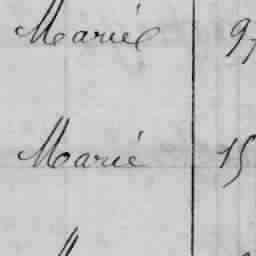 Mariée 97
Marié 15